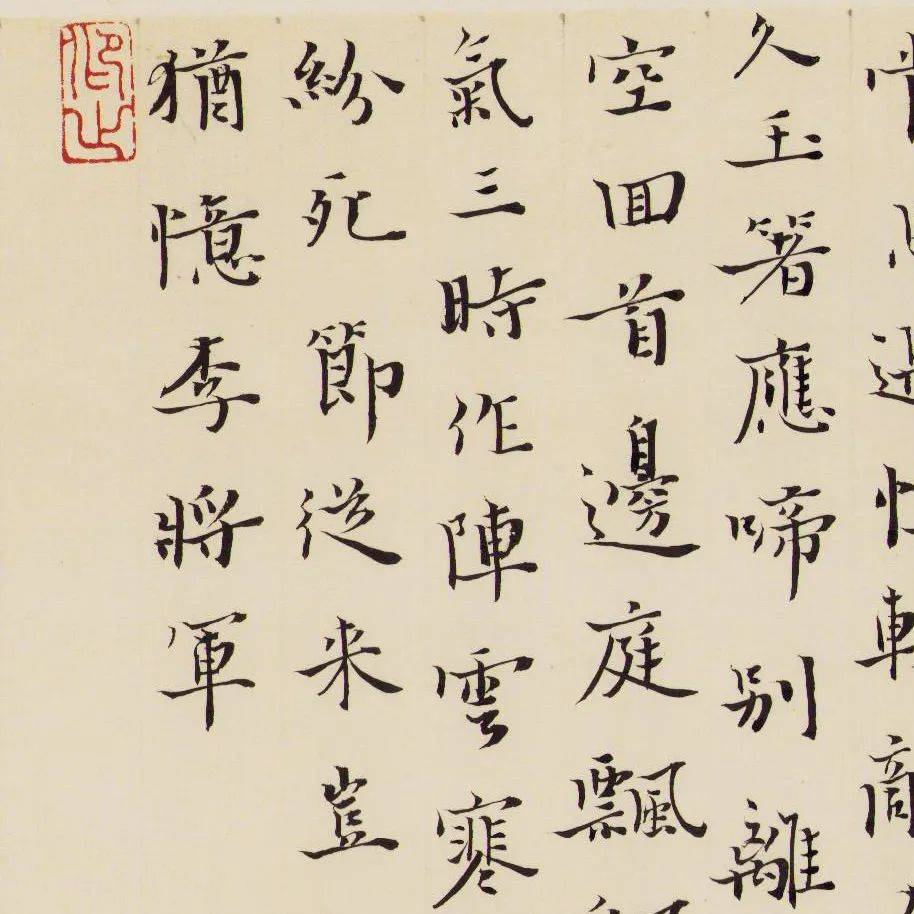 久玉箸應啼别離
空囬首邊庭飄
氣三時作陣雲寒
紛死節従来豈
猶憶李將軍